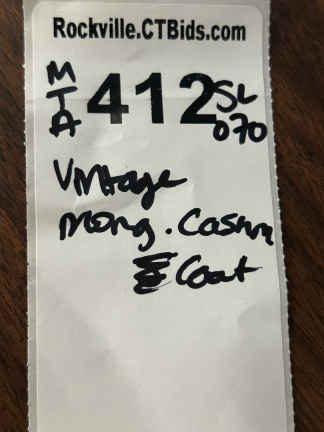 Rockville.CTBids.com
MIA 412 SL 070
Vintage
Mong. Cashm
Coat